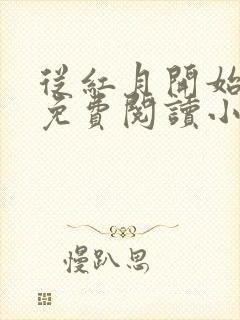 從紅月開始
免費閱讀小
慢趴思